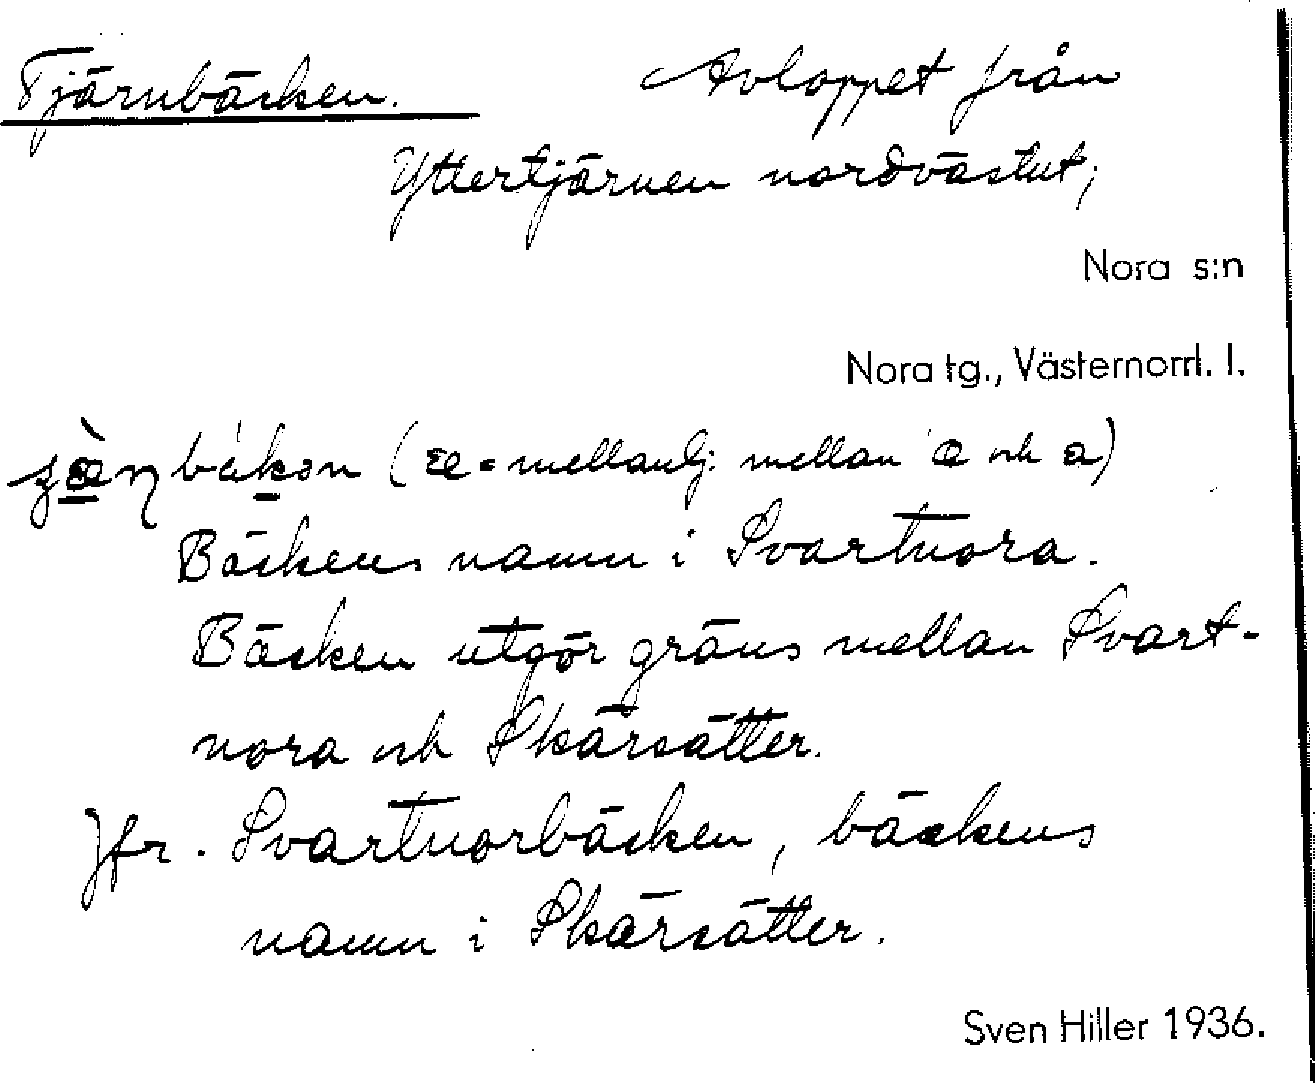 Tjärnbäcken. Avloppet från
Yttertjärnen nordvästut;
Nora s:n
Nora tg., Västernorrl. l.
bäkən (æ = mellanlj. mellan æ och a)
Bäckens namn i Svartnora.
Bäcken utgör gräns mellan Svart-
nora och Skärsätter.
Jfr. Svartnorbäcken, bäckens
namn i Skärsätter.
Sven Hiller 1936.